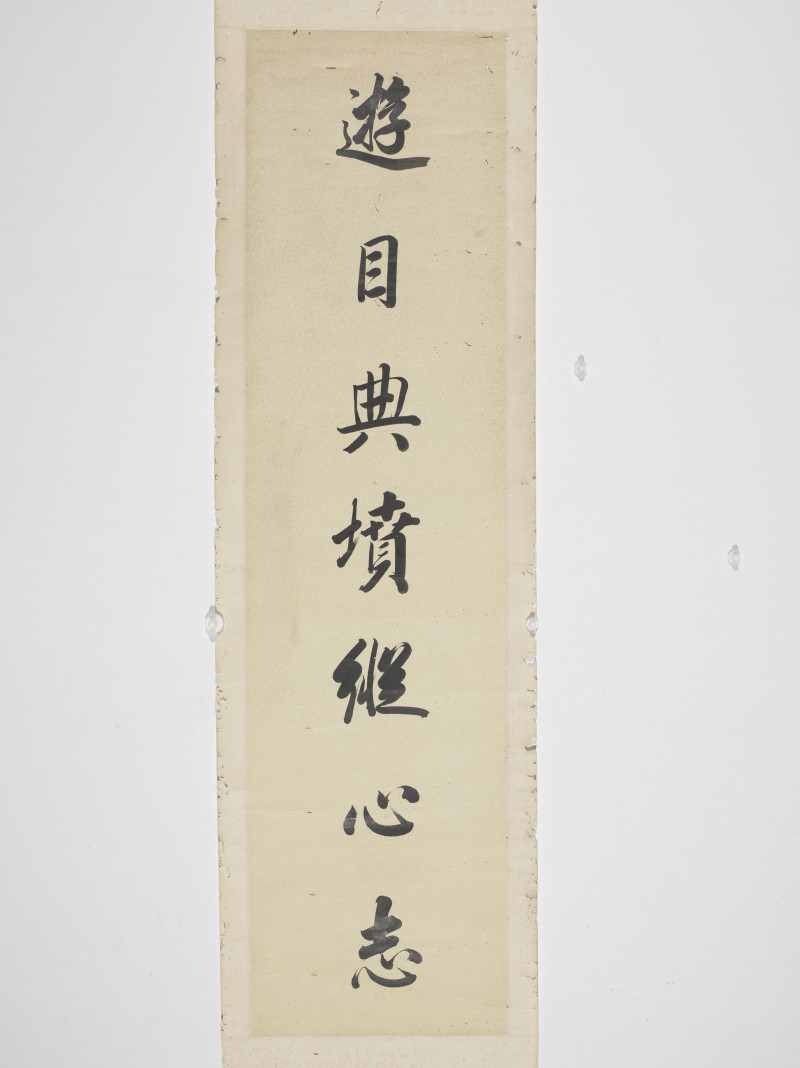 遊目典墳縱心志